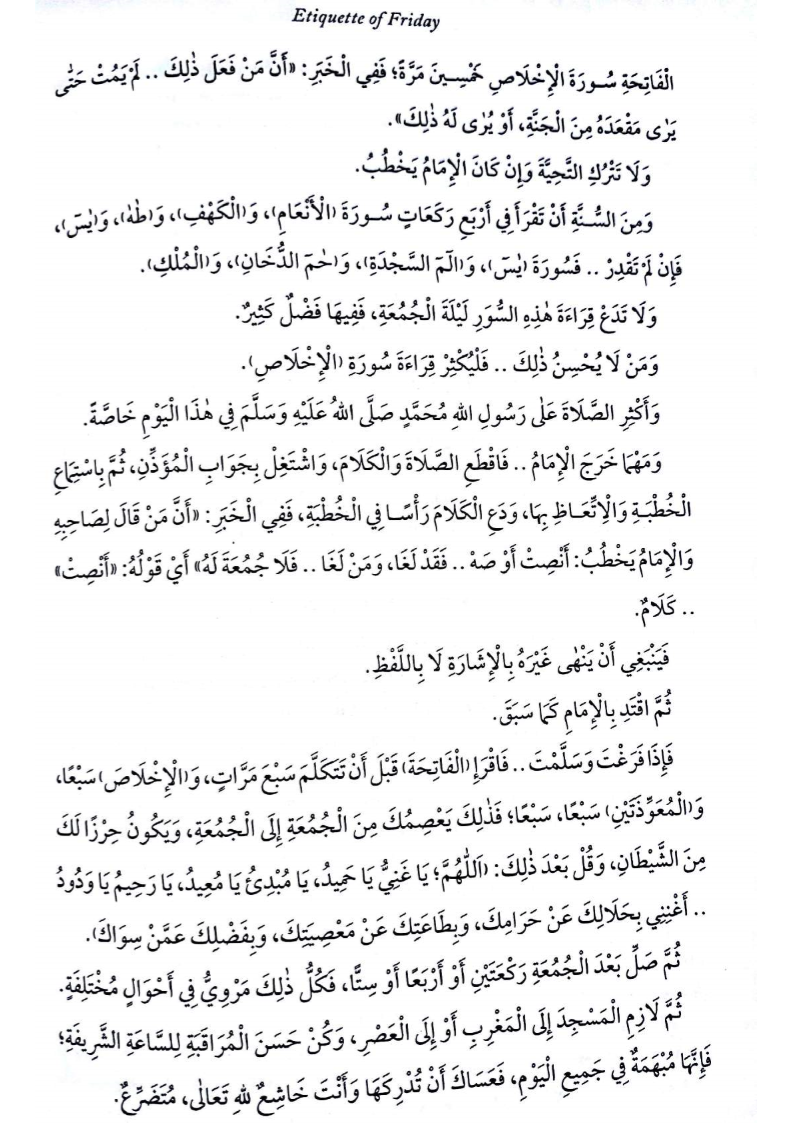 Etiquette of Friday
الْفَاتِحَةِ سُورَةَ الْإِخْلَاصِ خَمْسِينَ مَرَّةً؛ فَفِي الْخَبَرِ: «أَنَّ مَنْ فَعَلَ ذٰلِكَ .. لَمْ يَمُتْ حَتّٰى
يَرٰى مَقْعَدَهُ مِنَ الْجَنَّةِ، أَوْ يُرٰى لَهُ ذٰلِكَ».
وَلَا تَتْرُكِ التَّحِيَّةَ وَإِنْ كَانَ الْإِمَامُ يَخْطُبُ.
وَمِنَ السُّنَّةِ أَنْ تَقْرَأَ فِي أَرْبَعِ رَكَعَاتٍ سُورَةَ (الْأَنْعَامِ)، وَ(الْكَهْفِ)، وَ(طٰهٰ)، وَ(يٰسٓ)،
فَإِنْ لَمْ تَقْدِرْ .. فَسُورَةَ (يٰسٓ)، وَ(الٓمٓ السَّجْدَةِ)، وَ(حٰمٓ الدُّخَانِ)، وَ(الْمُلْكِ).
وَلَا تَدَعْ قِرَاءَةَ هٰذِهِ السُّوَرِ لَيْلَةَ الْجُمُعَةِ، فَفِيهَا فَضْلٌ كَثِيرٌ.
وَمَنْ لَا يُحْسِنُ ذٰلِكَ .. فَلْيُكْثِرْ قِرَاءَةَ سُورَةِ (الْإِخْلَاصِ).
وَأَكْثِرِ الصَّلَاةَ عَلٰى رَسُولِ اللهِ مُحَمَّدٍ صَلَّى اللهُ عَلَيْهِ وَسَلَّمَ فِي هٰذَا الْيَوْمِ خَاصَّةً.
وَمَهْمَا خَرَجَ الْإِمَامُ .. فَاقْطَعِ الصَّلَاةَ وَالْكَلَامَ، وَاشْتَغِلْ بِجَوَابِ الْمُؤَذِّنِ، ثُمَّ بِاسْتِمَاعِ
الْخُطْبَةِ وَالْاِتِّعَاظِ بِهَا، وَدَعِ الْكَلَامَ رَأْسًا فِي الْخُطْبَةِ، فَفِي الْخَبَرِ: «أَنَّ مَنْ قَالَ لِصَاحِبِهِ
وَالْإِمَامُ يَخْطُبُ: أَنْصِتْ أَوْ صَهْ .. فَقَدْ لَغَا، وَمَنْ لَغَا .. فَلَا جُمُعَةَ لَهُ» أَيْ قَوْلُهُ: «أَنْصِتْ»
.. كَلَامٌ.
فَيَنْبَغِي أَنْ يَنْهٰى غَيْرَهُ بِالْإِشَارَةِ لَا بِاللَّفْظِ.
ثُمَّ اقْتَدِ بِالْإِمَامِ كَمَا سَبَقَ.
فَإِذَا فَرَغْتَ وَسَلَّمْتَ .. فَاقْرَإِ (الْفَاتِحَةَ) قَبْلَ أَنْ تَتَكَلَّمَ سَبْعَ مَرَّاتٍ، وَ(الْإِخْلَاصَ) سَبْعًا،
وَ(الْمُعَوِّذَتَيْنِ) سَبْعًا، سَبْعًا؛ فَذٰلِكَ يَعْصِمُكَ مِنَ الْجُمُعَةِ إِلَى الْجُمُعَةِ، وَيَكُونُ حِرْزًا لَكَ
مِنَ الشَّيْطَانِ، وَقُلْ بَعْدَ ذٰلِكَ: (اَللّٰهُمَّ؛ يَا غَنِيُّ يَا حَمِيدُ، يَا مُبْدِئُ يَا مُعِيدُ، يَا رَحِيمُ يَا وَدُودُ
.. أَغْنِنِي بِحَلَالِكَ عَنْ حَرَامِكَ، وَبِطَاعَتِكَ عَنْ مَعْصِيَتِكَ، وَبِفَضْلِكَ عَمَّنْ سِوَاكَ).
ثُمَّ صَلِّ بَعْدَ الْجُمُعَةِ رَكْعَتَيْنِ أَوْ أَرْبَعًا أَوْ سِتًّا، فَكُلُّ ذٰلِكَ مَرْوِيٌّ فِي أَحْوَالٍ مُخْتَلِفَةٍ.
ثُمَّ لَازِمِ الْمَسْجِدَ إِلَى الْمَغْرِبِ أَوْ إِلَى الْعَصْرِ، وَكُنْ حَسَنَ الْمُرَاقَبَةِ لِلسَّاعَةِ الشَّرِيفَةِ؛
فَإِنَّهَا مُبْهَمَةٌ فِي جَمِيعِ الْيَوْمِ، فَعَسَاكَ أَنْ تُدْرِكَهَا وَأَنْتَ خَاشِعٌ لِلهِ تَعَالٰى، مُتَضَرِّعٌ.